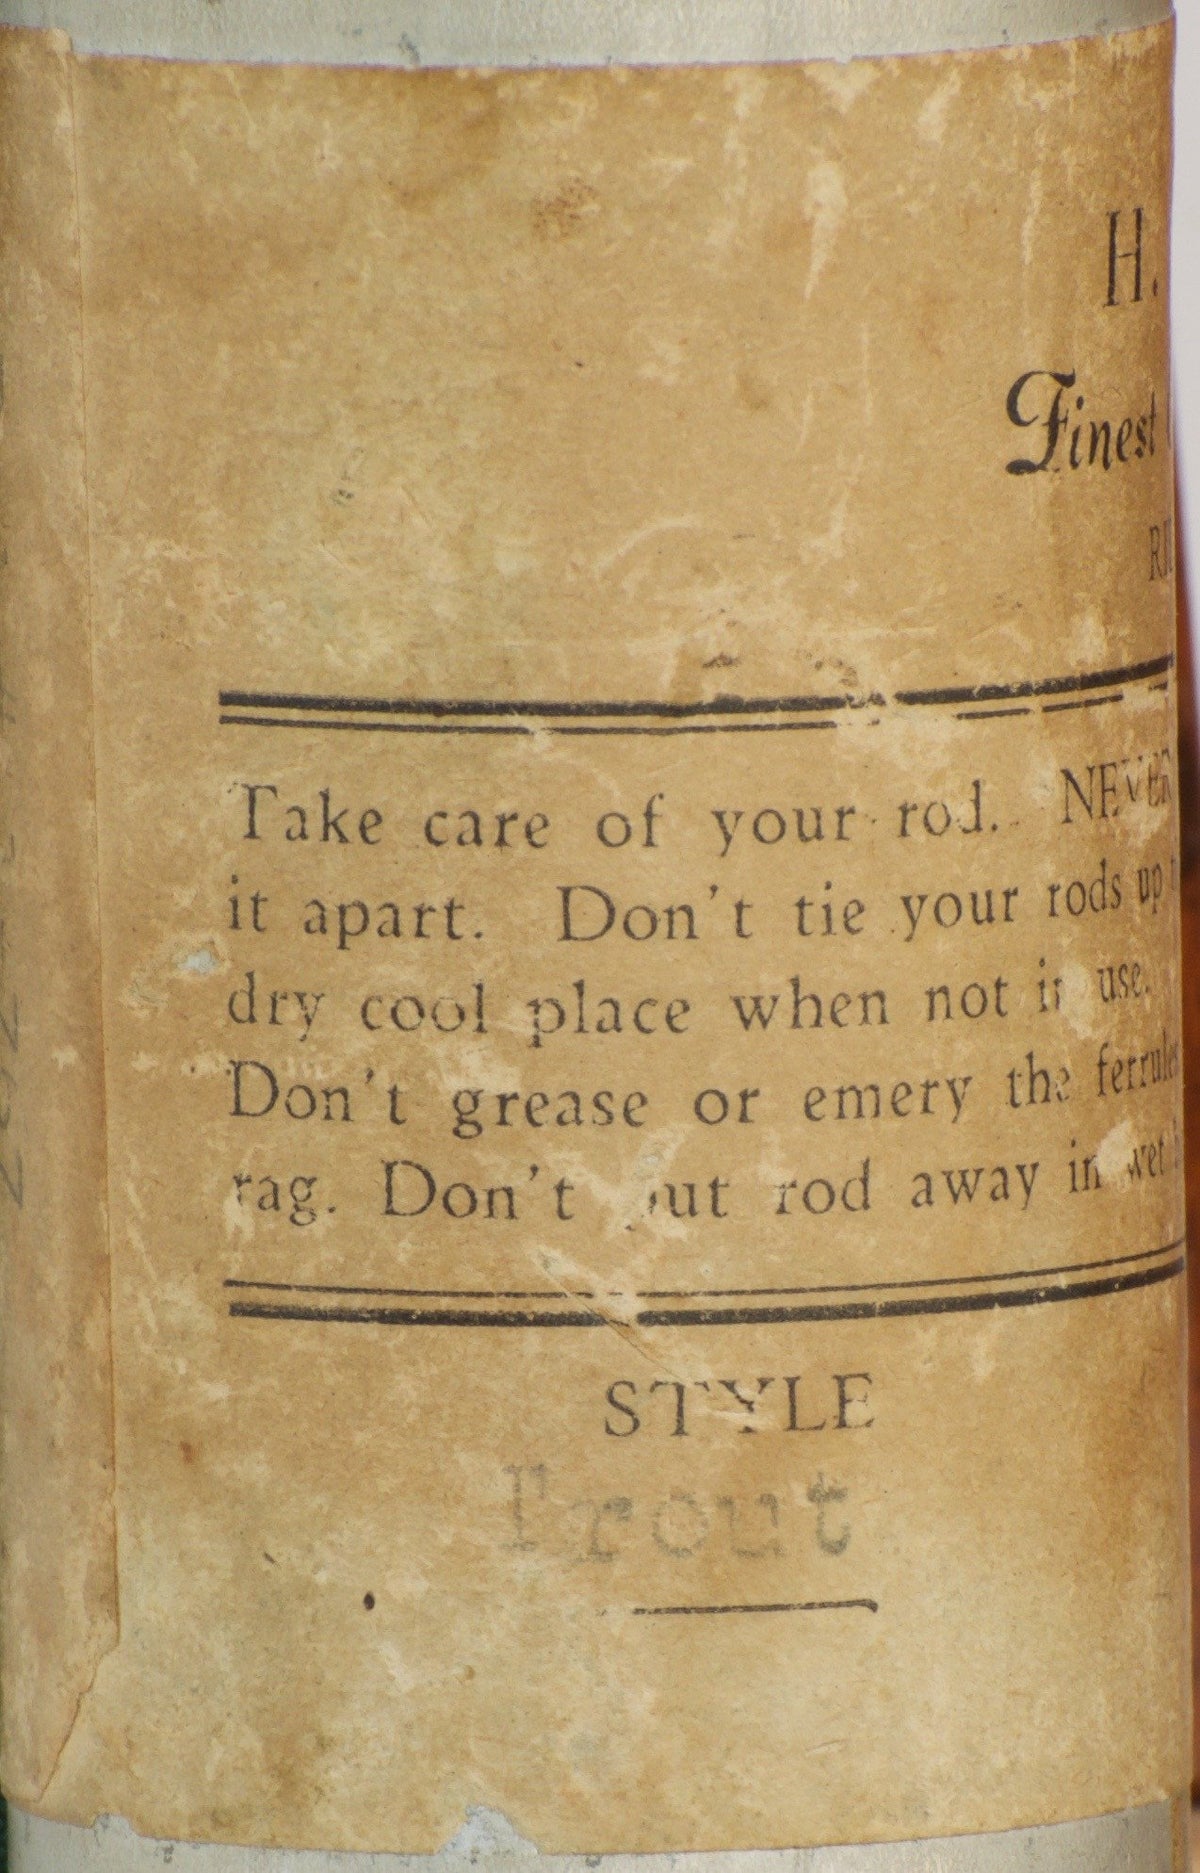 H.
Finest
Take care of your rod. NEVER
it apart. Don't tie your rods up
dry cool place when not in use.
Don't grease or emery the ferrules
rag. Don't put rod away in wet
STYLE
Trout